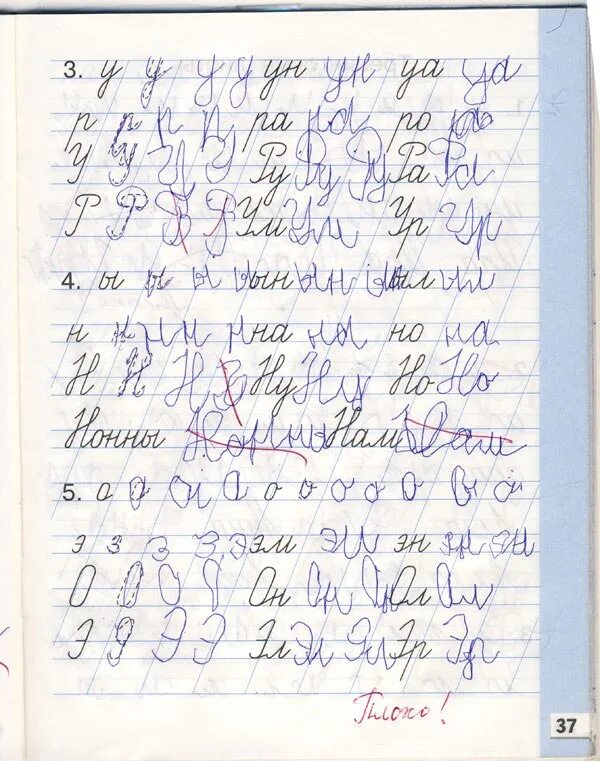 3. у у у у ун ун уа уа
р р р р ра ра ро ро
У У У У Ру Ру Ру Ра Ра
Р Р Р Р Ум Ум Ур Ур
4. ы ы ы ы ын ын ын ыл ыл
н н н н н на на но на
Н Н Н Ну Ну Но Но
Нонны Нонны Нам Нам
5. о о о о о о о о о
э э э э э эм эм эн эн эн
О О О О Он Он Он Ол Ол
Э Э Э Э Эл Эл Эл Эр Эр
Плохо!
37